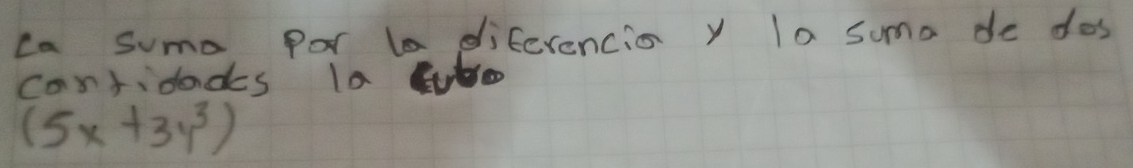 La suma por la diferencia y la suma de dos
cantidades la cubo
(5x+3y³)